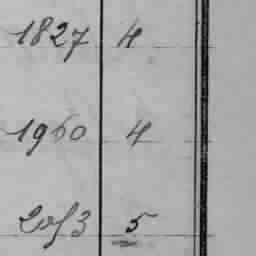 1827 4
1960 4
2053 5